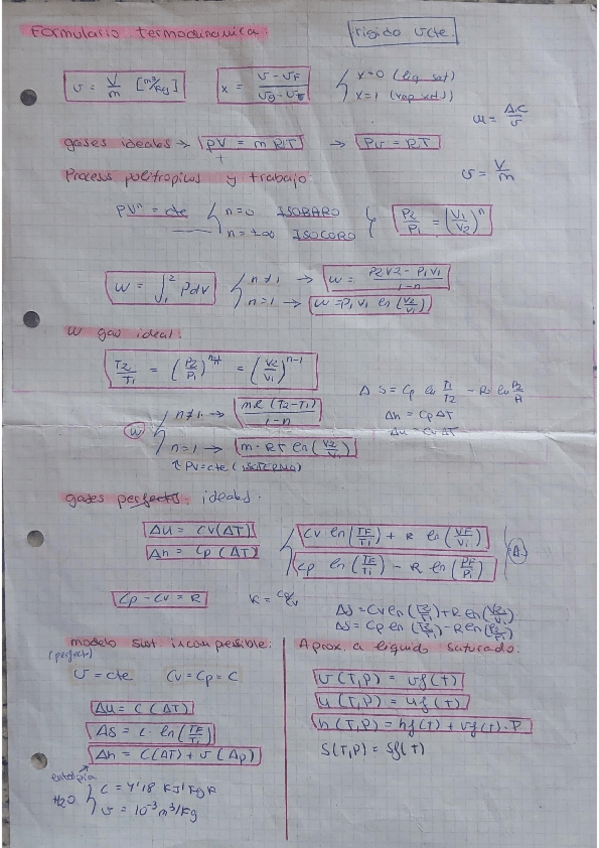 Formulario termodinamica:
rigido υ cte.
υ = V/m [m³/kg]
x = (υ - υF)/(υg - υF) { x=0 (liq. sat)
x=1 (vap sat)
u = A·C/υ
gases ideales → PV = mRT → Pυ = RT
υ = V/m
Procesos politropicos y trabajo:
PVⁿ = cte { n=0 ISOBARO
n = ±∞ ISOCORO
P2/P1 = (V1/V2)ⁿ
W = ∫₁² Pdv { n≠1 → W = (P2V2 - P1V1)/(1-n)
n=1 → W = P1V1 ln(V2/V1)
W gas ideal:
T2/T1 = (P2/P1) = (V2/V1)ⁿ⁻¹
ΔS = Cp ln T1/T2 - R ln P2/P1
Δh = Cp ΔT
Δu = Cv ΔT
W { n≠1 → mR(T2-T1)/(1-n)
n=1 → m·RT ln(V2/V1)
↑ PV=cte (ISOTERMO)
gases perfectos: ideales.
ΔU = CV(ΔT)
Δh = Cp(ΔT)
{ CV ln(TF/Ti) + R ln(VF/Vi)
Cp ln(TF/Ti) - R ln(PF/Pi)
Cp - Cv = R
K = Cp/Cv
ΔS = Cv ln(T2/T1) + R ln(V2/V1)
ΔS = Cp ln(T2/T1) - R ln(P2/P1)
modelo sust incompresible:
(perfecto)
υ = cte Cv = Cp = C
ΔU = C(ΔT)
ΔS = C· ln(TF/Ti)
Δh = C(ΔT) + υ(Δp)
entalpia
H2O { C = 4'18 KJ/KgK
υ = 10⁻³ m³/Kg
Aprox. a liquido saturado:
υ(T,P) = υf(T)
u(T,P) = uf(T)
h(T,P) = hf(T) + υf(T)·P
S(T,P) = Sf(T)